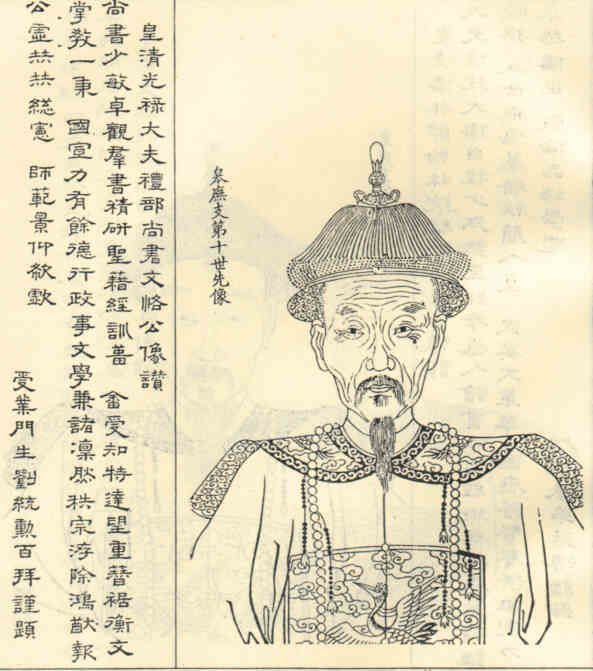 皋廡支第十世先像
皇清光祿大夫禮部尚書文恪公像讚
尚書少敏卓觀羣書精研聖藉經訓菑 畬受知特達望重簪裾衡文
掌教一秉 國宣力有餘德行政事文學兼諸凜然秩宗洊除鴻猷報
公虛 總憲 師範景仰欷歔
受業門生劉統勳百拜謹題